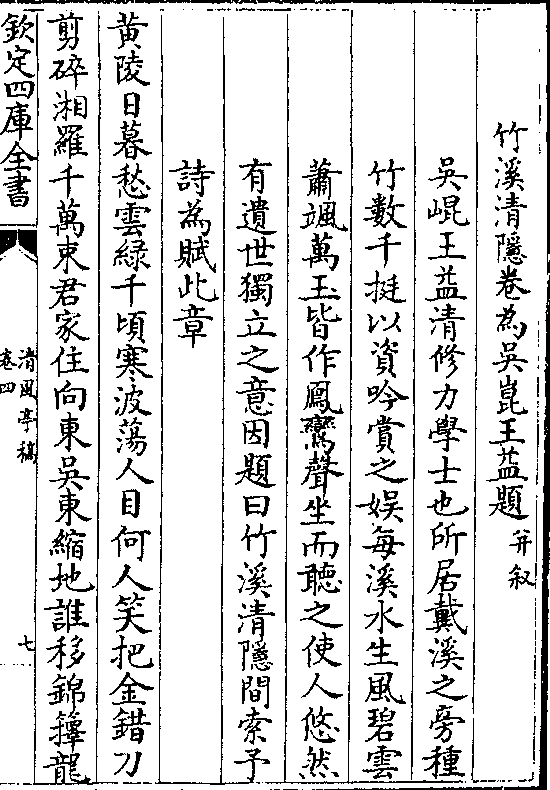 竹溪清隱卷為吳崑王益題并叙
吳崐王益清修力學士也所居戴溪之旁種
竹數千挺以資吟賞之娛每溪水生風碧雲
蕭颯萬玉皆作鳳鸞聲坐而聽之使人悠然
有遺世獨立之意因題曰竹溪清隱間索予
詩為賦此章
黄陵日暮愁雲緑千頃寒波蕩人目何人笑把金錯刀
剪碎湘羅千萬束君家住向東吳東縮地誰移錦籜龍
欽定四庫全書
清風亭稿
卷四
七